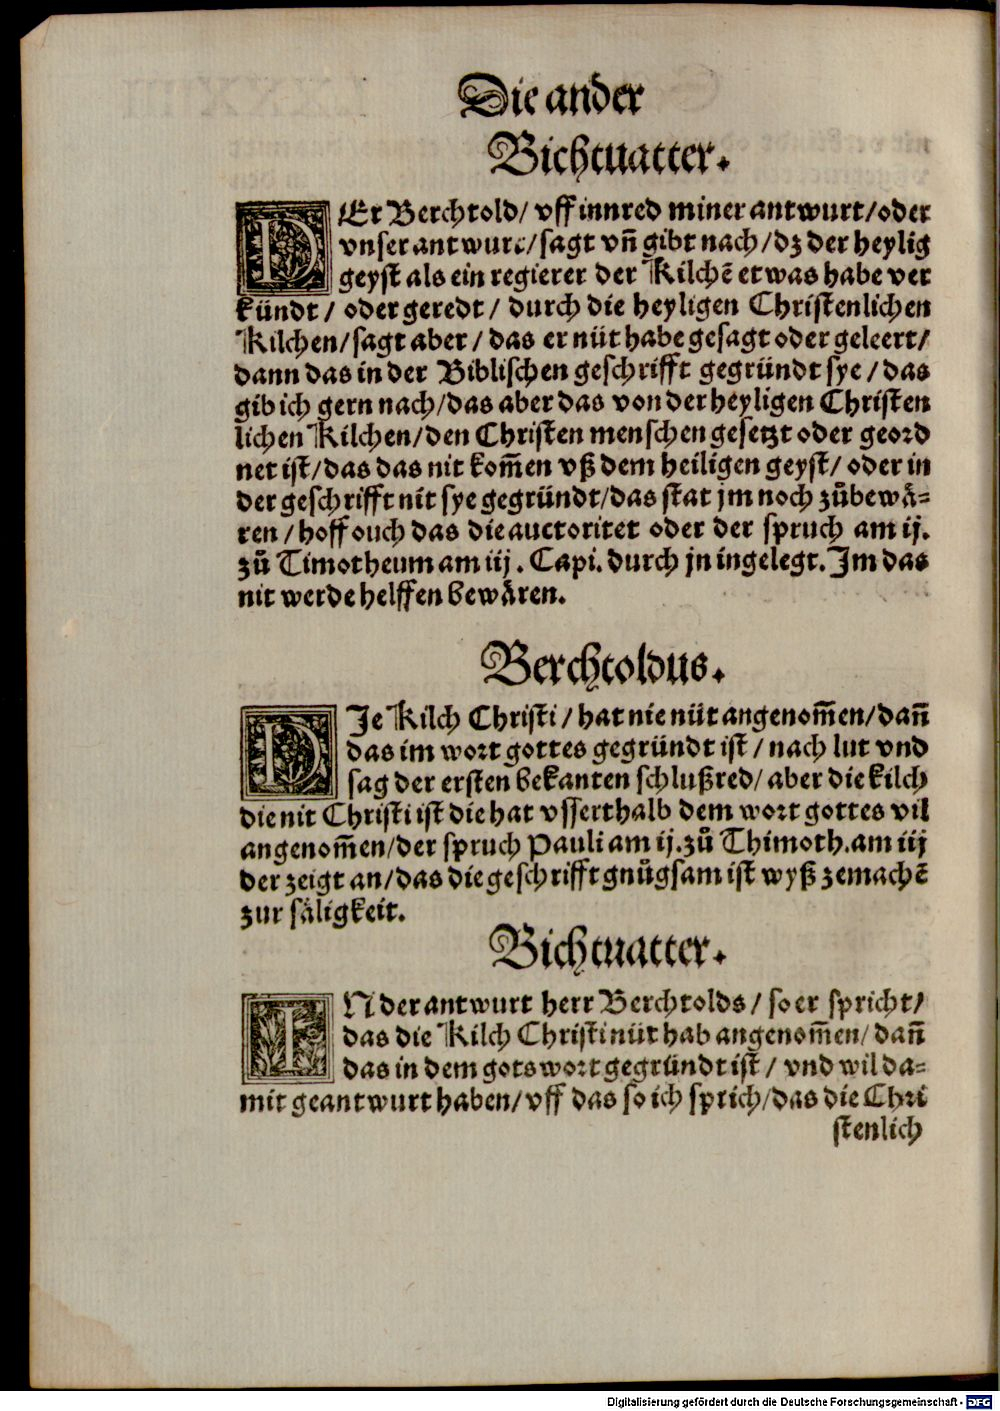 Die ander
Bichtuatter.
DEr Berchtold/ vff innred miner antwurt/oder
vnser antwurt/sagt vn̄ gibt nach/dz der heylig
geyst als ein regierer der Kilchē etwas habe ver
kündt / oder geredt / durch die heyligen Christenlichen
Kilchen/sagt aber / das er nüt habe gesagt oder geleert/
dann das in der Biblischen geschrifft gegründt sye / das
gib ich gern nach/das aber das von der heyligen Christen
lichen Kilchen/den Christen menschen gesetzt oder geord
net ist/das das nit kom̄en vß dem heiligen geyst/ oder in
der geschrifft nit sye gegründt/das stat jm noch zůbewä=
ren / hoff ouch das die auctoritet oder der spruch am ij.
zů Timotheum am iij. Capi. durch jn ingelegt. Im das
nit werde helffen bewären.
Berchtoldus.
DIe Kilch Christi / hat nie nüt angenom̄en/dan̄
das im wort gottes gegründt ist / nach lut vnd
sag der ersten bekanten schlußred/ aber die kilch
die nit Christi ist die hat vsserthalb dem wort gottes vil
angenom̄en/der spruch Pauli am ij.zů Thimoth.am iij
der zeigt an/das die geschrifft gnůgsam ist wyß zemachē
zur säligkeit.
Bichtuatter.
IN der antwurt herr Berchtolds / so er spricht/
das die Kilch Christi nüt hab angenom̄en/ dan̄
das in dem gots wort gegründt ist / vnd wil da=
mit geantwurt haben/ vff das so ich sprich/das die Chri
stenlich
Digitalisierung gefördert durch die Deutsche Forschungsgemeinschaft - DFG